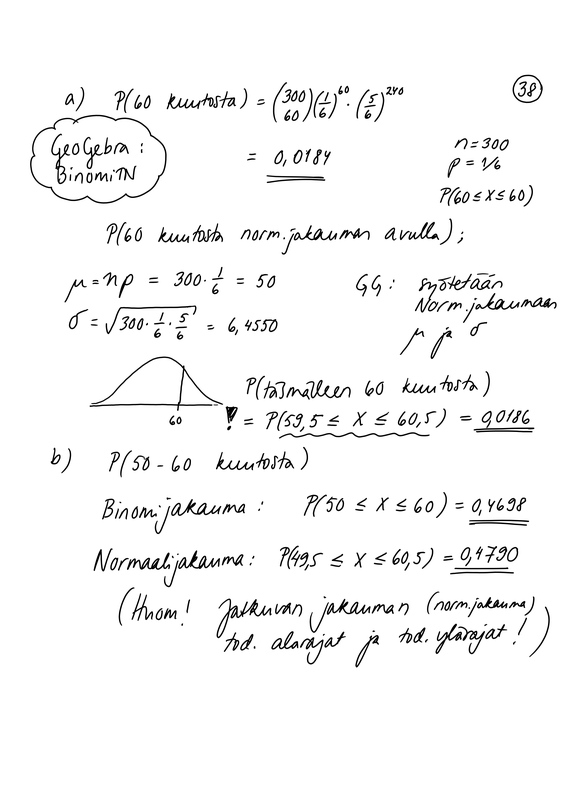 38
a) P(60 kuutosta) = (300 60)(1/6)^60 · (5/6)^240
GeoGebra :
BinomiTN
= 0,0184
n = 300
p = 1/6
P(60 ≤ X ≤ 60)
P(60 kuutosta norm.jakauman avulla) ;
μ = np = 300 · 1/6 = 50
σ = √(300 · 1/6 · 5/6) = 6,4550
GG : syötetään
Norm.jakaumaan
μ ja σ
60
P(täsmälleen 60 kuutosta)
! = P(59,5 ≤ X ≤ 60,5) = 0,0186
b) P(50 - 60 kuutosta)
Binomijakauma : P(50 ≤ X ≤ 60) = 0,4698
Normaalijakauma : P(49,5 ≤ X ≤ 60,5) = 0,4790
(Huom! Jatkuvan jakauman (norm.jakauma)
tod. alarajat ja tod. ylärajat ! )